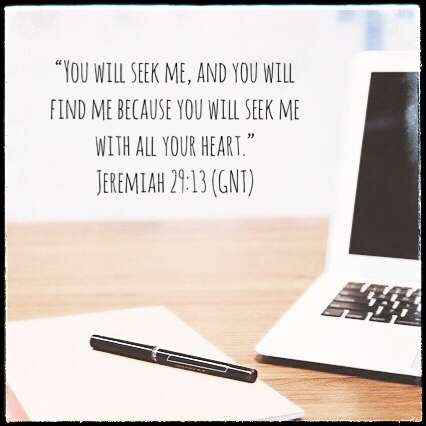 “You will seek me, and you will
find me because you will seek me
with all your heart.”
Jeremiah 29:13 (GNT)